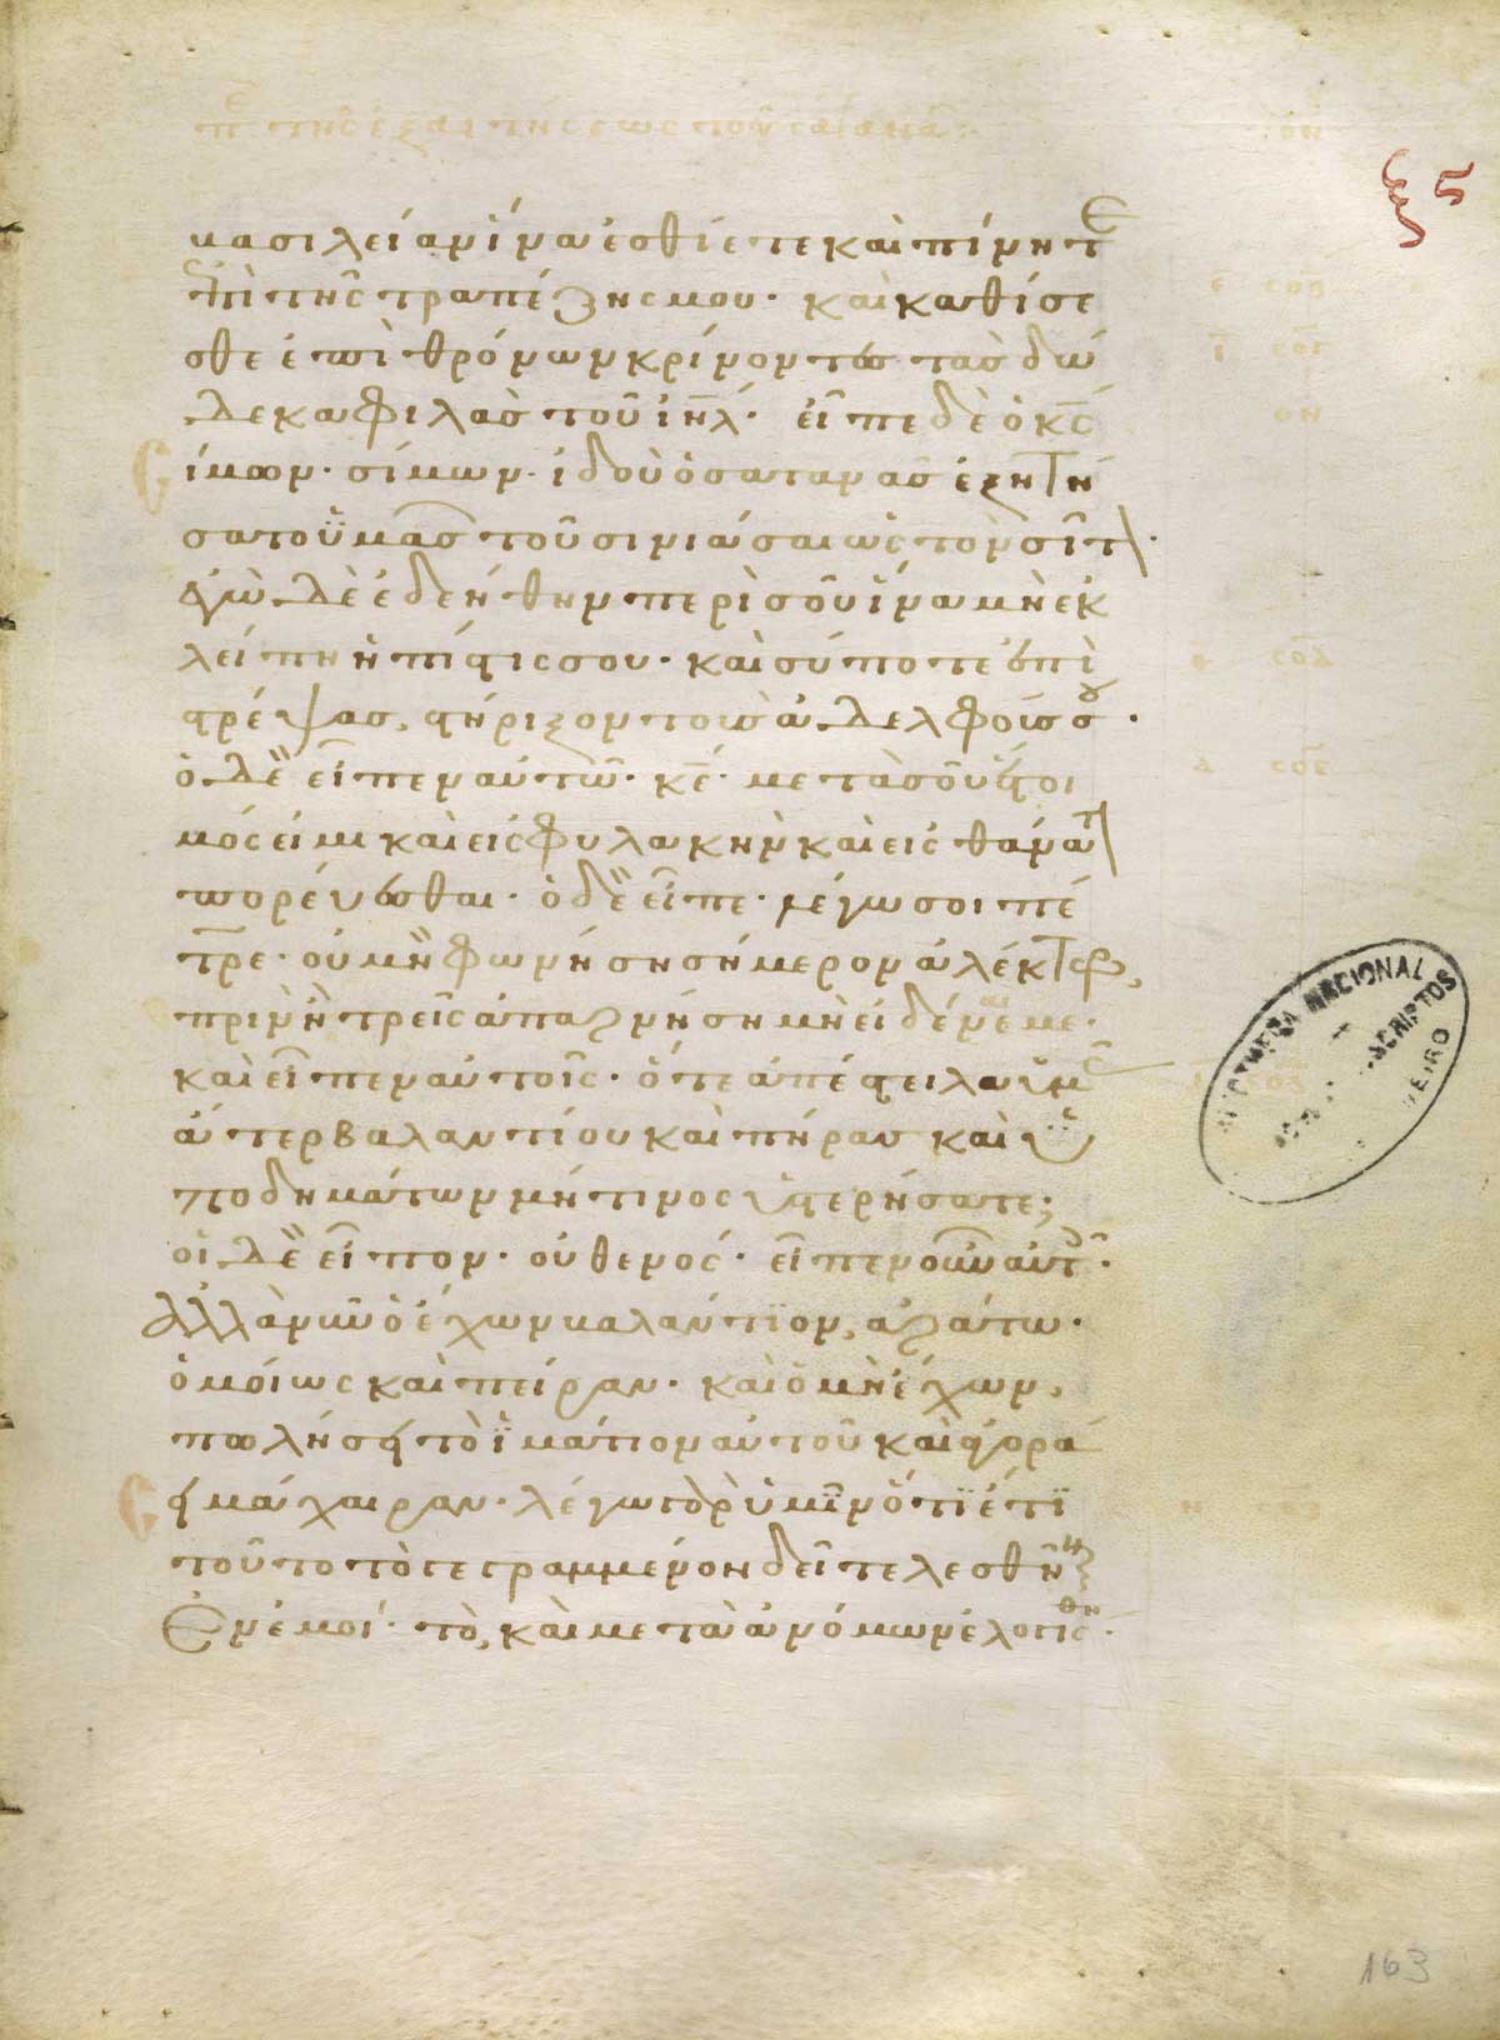 βασιλείαν ἵνα ἐσθίετε καὶ πίνητε
ἐπὶ τῆς τραπέζης μου· καὶ καθίσε
σθε ἐπὶ θρόνων κρίνοντες τὰσ δώ
δεκα φιλὰσ τοῦ ἰη̅λ· εἶπε δὲ ὁ κ̅ς
ίμων· σίμων· ἰδοὺ ὁ σατανᾶσ ἐξητή
σατο ὑμᾶσ τοῦ σινιάσαι ὡς τὸν σῖτ·
ἐγὼ δὲ ἐδεήθην περὶ σοῦ ἵνα μὴ ἐκ
λείπη ἡ πίστις σου· καὶ σύ ποτε ἐπι
στρέψασ, στήριξον τοὺσ ἀδελφούσ σου·
ὁ δὲ εἶπεν αὐτῶ· κ̅ε· μετὰ σοῦ ἕτοι
μός εἰμι καὶ εἰς φυλακὴν καὶ εἰς θάνατ
πορεύεσθαι· ὁ δὲ εἶπε· λέγω σοι πέ
τρε· οὐ μὴ φωνήση σήμερον ἀλέκτωρ,
πρὶν ἢ τρεῖς ἀπαρνήση μὴ εἰδέναι με·
καὶ εἶπεν αὐτοῖς· ὅτε ἀπέστειλα ὑμᾶς
ἄτερ βαλαντίου καὶ πήρασ καὶ ὑ
ποδημάτων μή τινος ὑστερήσατε;
οἱ δὲ εἶπον· οὐθενός· εἶπεν οὖν αὐτοῖς·
ἀλλὰ νῦν ὁ ἔχων βαλάντϊον, ἀράτω·
ὁμοίως καὶ πείραν· καὶ ὁ μὴ ἔχων,
πωλήσει τὸ ϊμάτιον αὐτοῦ καὶ ἀγορά
σει μάχαιραν· λέγω γὰρ ὑμῖν ὅτϊ ἔτϊ
τοῦτο τὸ γεγραμμένον δεῖ τελεσθῆναι
ἐν ἐμοί· τὸ, καὶ μετὰ ἀνόμων ἐλογίσθη·
ξς
BIBLIOTHECA NACIONAL
163